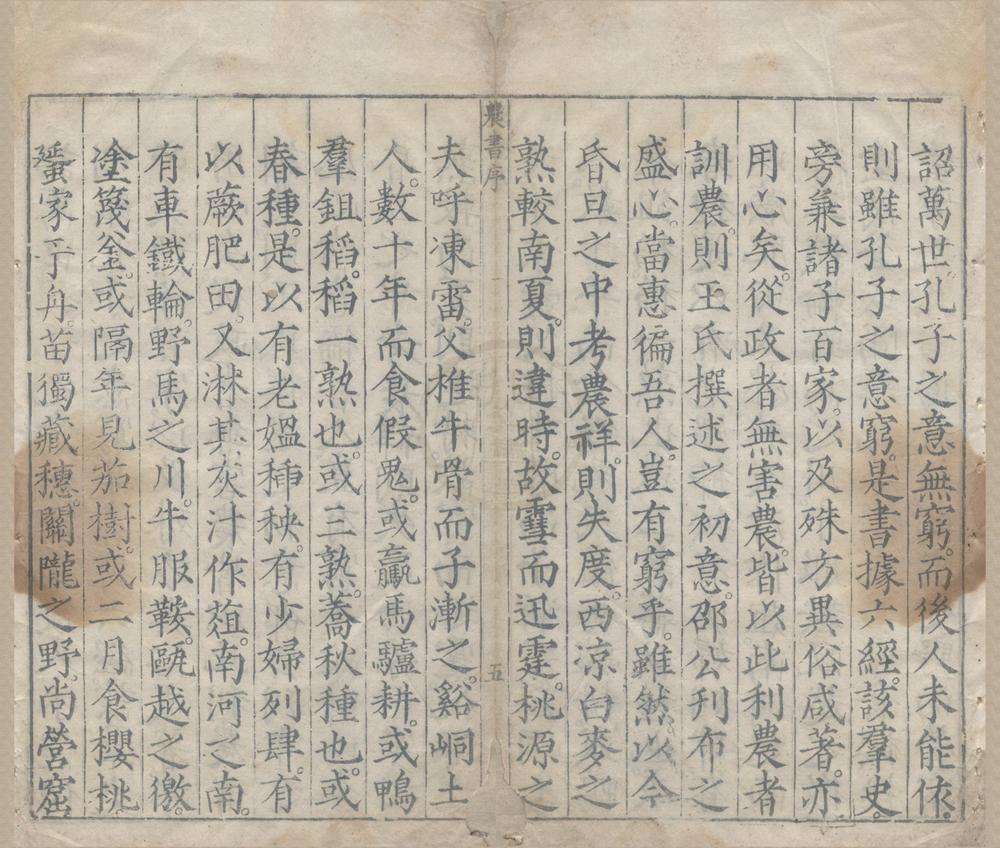 詔萬世孔子之意無窮而後人未能依
則雖孔子之意窮是書據六經該羣史
旁兼諸子百家以及殊方異俗咸著亦
用心矣從政者無害農皆以此利農者
訓農則王氏撰述之初意邵公刋布之
盛心當惠徧吾人豈有窮乎雖然以今
昏旦之中考農祥則失度西凉白麥之
熟較南夏則違時故霅而迅霆桃源之
農書序
五
夫呼凍雷父椎牛骨而子漸之谿峒土
人數十年而食假鬼或驘馬驢耕或鴨
羣鉏稻稻一熟也或三熟蕎秋種也或
春種是以有老媼插秧有少婦列肆有
以蕨肥田又淋其灰汁作葅南河之南
有車鐵輪野馬之川牛服鞍甌越之徼
塗篾釡或隔年見茄樹或二月食櫻桃
蜑家于舟苗獨藏穗關隴之野尚營窟